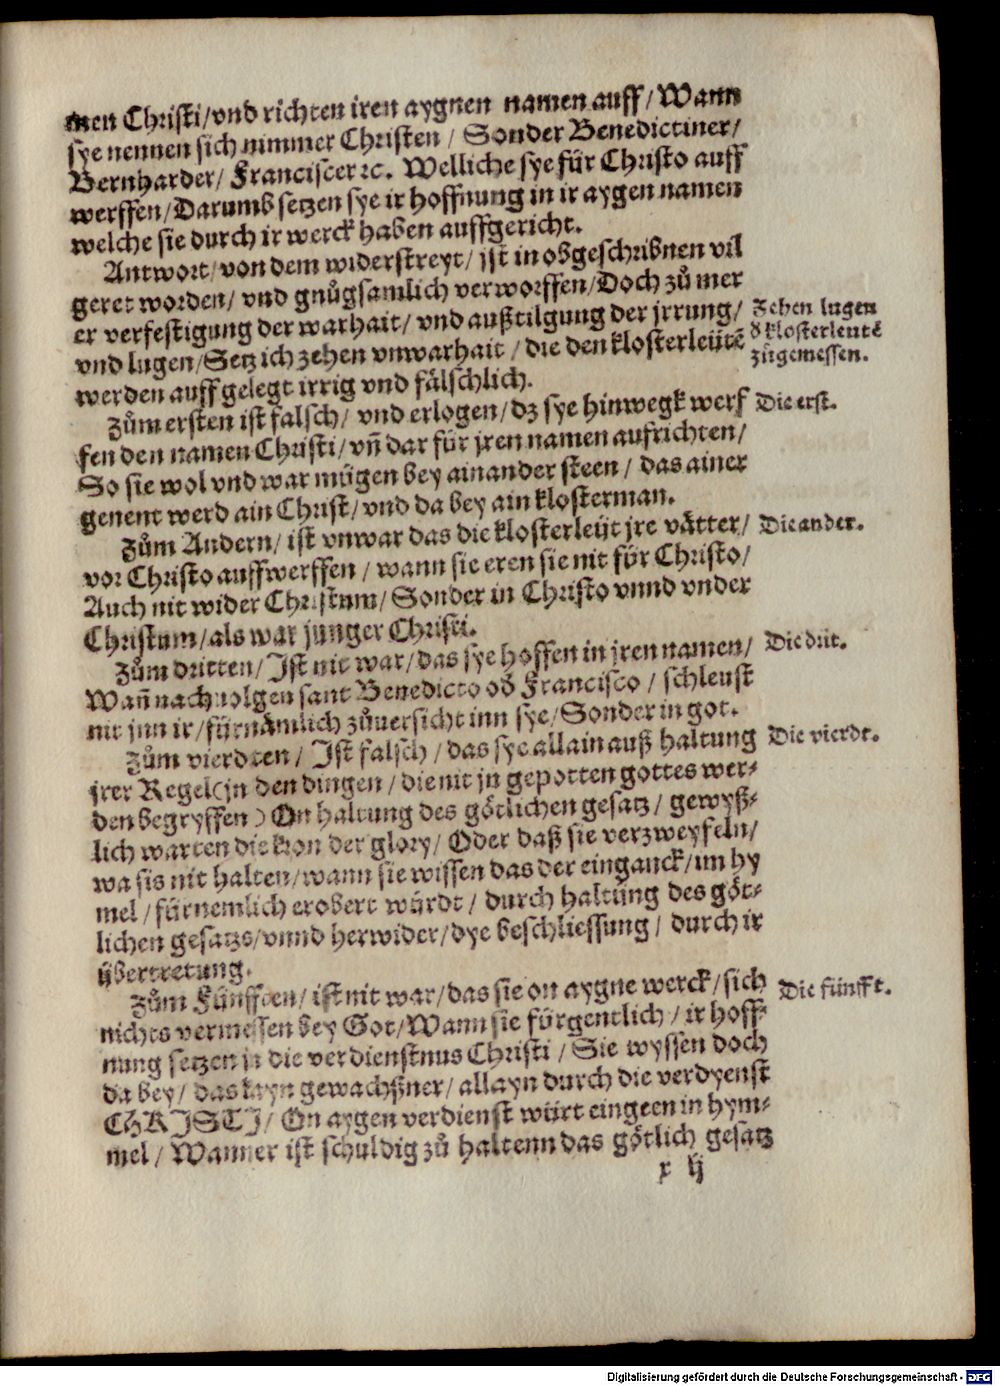 men Christi/vnd richten iren aygnen namen auff/Wann
sye nennen sich nimmer Christen / Sonder Benedictiner/
Bernharder/ Franciscer ꝛc. Welliche sye für Christo auff
werffen/Darumb setzen sye ir hoffnung in ir aygen namen
welche sie durch ir werck haben auffgericht.
Antwort/von dem widerstreyt/ jst in obgeschribnen vil
geret worden/ vnd gnůgsamlich verworffen/Doch zů mer
er verfestigung der warhait/ vnd außtilgung der jrrung/
vnd lugen/Setz ich zehen vnwarhait / die den klosterleütē
werden auffgelegt irrig vnd fälschlich.
Zehen lugen
d̕ klosterleutē
zůgemessen.
Zům ersten ist falsch/ vnd erlogen/dz sye hinwegk werf
fen den namen Christi/vn̄ dar für jren namen aufrichten/
So sie wol vnd war mügen bey ainander steen / das ainer
genent werd ain Christ/vnd da bey ain klosterman.
Die erst.
Zům Andern/ ist vnwar das die klosterleüt jre vätter/
vor Christo auffwerffen / wann sie eren sie nit für Christo/
Auch nit wider Christum/ Sonder in Christo vnnd vnder
Christum/als war junger Christi.
Die ander.
Zům dritten/ Ist nit war/das sye hoffen in jren namen/
Wan̄ nachuolgen sant Benedicto od̕ Francisco / schleust
nit jnn ir/fürnämlich zůuersicht inn sye/Sonder in got.
Die drit.
Zům vierdten / Ist falsch / das sye allain auß haltung
jrer Regel(jn den dingen / die nit jn gepotten gottes wer⸗
den begryffen ) On haltung des götlichen gesatz / gewyß⸗
lich warten die kron der glory/ Oder daß sie verzweyfeln/
wa sis nit halten/wann sie wissen das der einganck/im hy
mel /fürnemlich erobert würdt / durch haltung des göt⸗
lichen gesatzs/vnnd herwider/dye beschliessung / durch ir
übertretung.
Die vierdt.
Zům Fünfften/ ist nit war/das sie on aygne werck/sich
nichts vermessen bey Got/Wann sie fürgentlich / ir hoff⸗
nung setzen in die verdienstnus Christi / Sie wyssen doch
da bey/ das kayn gewachßner/ allayn durch die verdyenst
CHRISTI/ On aygen verdienst würt eingeen in hym⸗
mel / Wann er ist schuldig zů haltenn das götlich gesatz
Die fünfft.
x ij
Digitalisierung gefördert durch die Deutsche Forschungsgemeinschaft - DFG